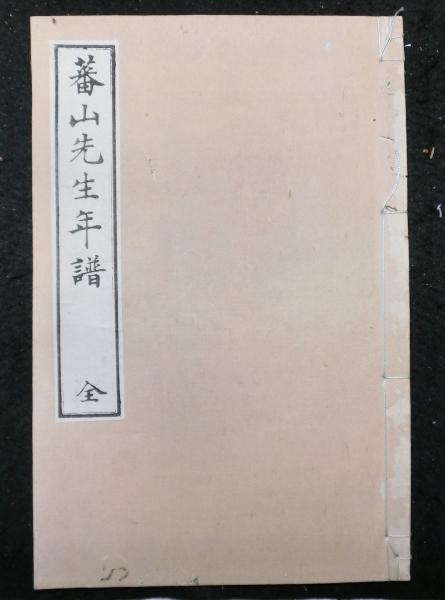 蕃山先生年譜
全